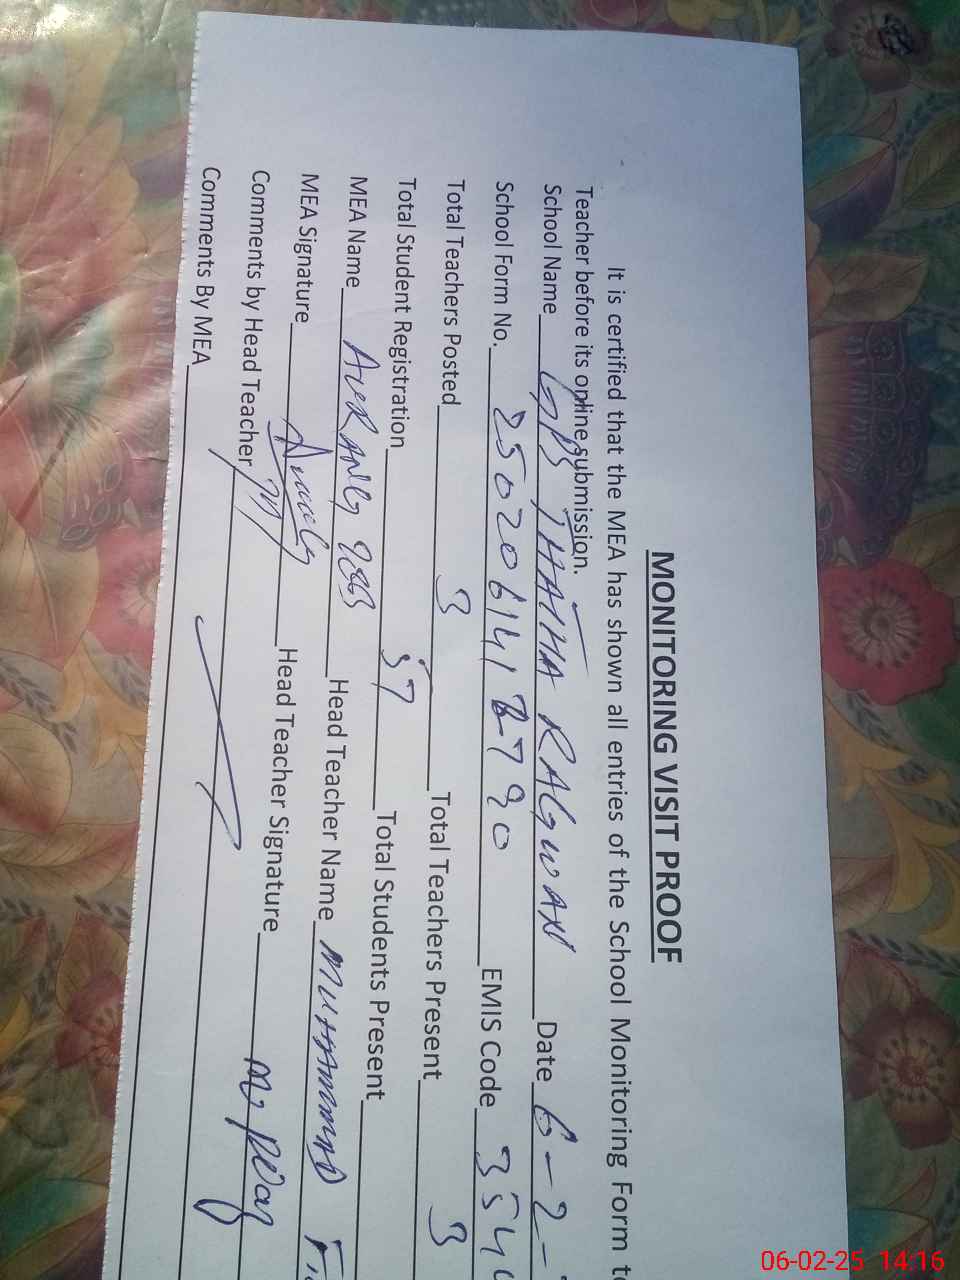 MONITORING VISIT PROOF
It is certified that the MEA has shown all entries of the School Monitoring Form to
Teacher before its online submission.
School Name GPS JHATHA RAGWAN Date 6-2-
School Form No. EMIS Code 354
Total Teachers Posted 3 Total Teachers Present 3
Total Student Registration 57 Total Students Present
MEA Name AURANG Head Teacher Name MUHAMMAD
MEA Signature Head Teacher Signature
Comments by Head Teacher
Comments By MEA
06-02-25 14:16